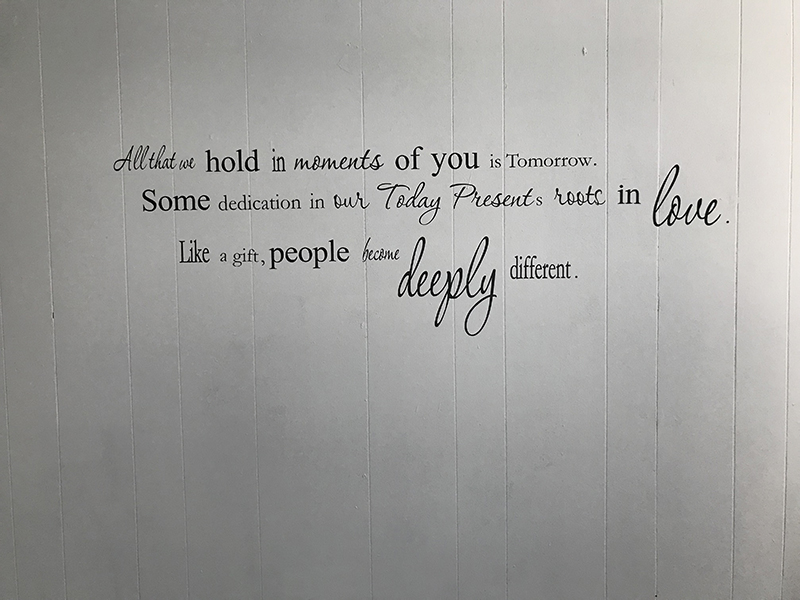 All that we hold in moments of you is Tomorrow.
Some dedication in our Today Presents roots in love.
Like a gift, people become deeply different.